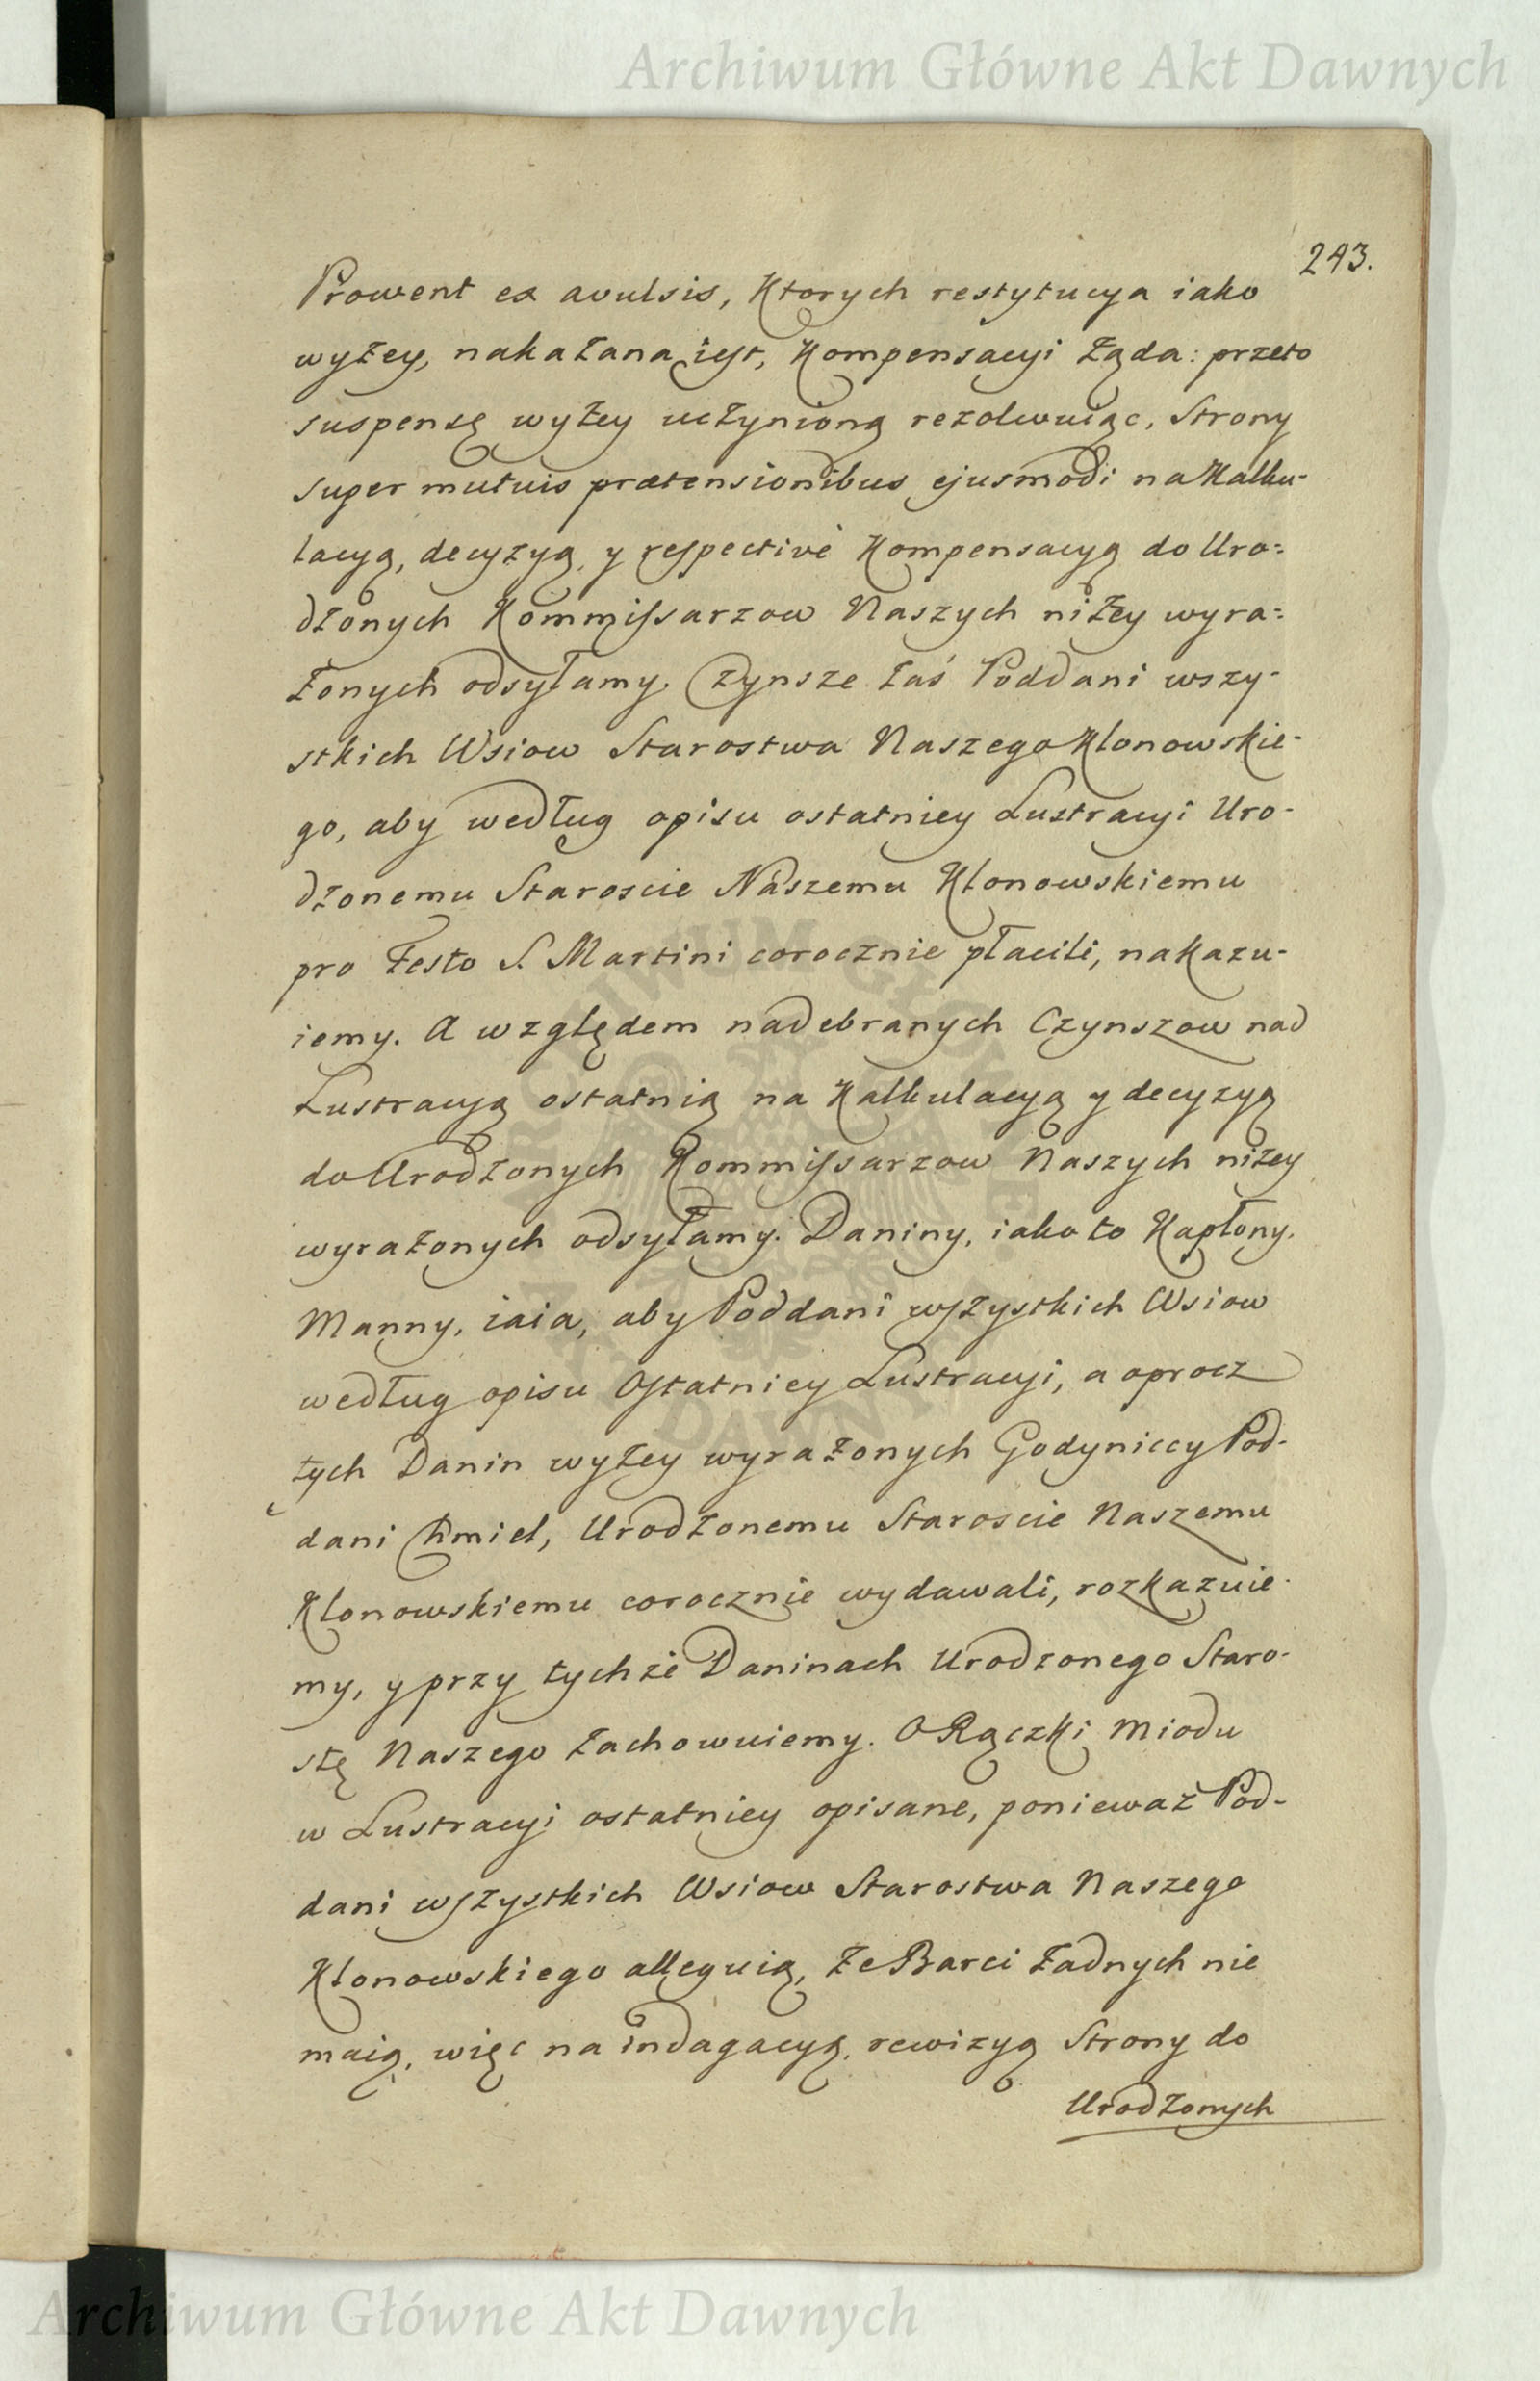 Archiwum Główne Akt Dawnych
243.
Prowent ex avulsis, Ktorych restytucya iako
wyżey, nakazana iest, Kompensacyi żąda: przeto
suspensę wyżey uczynioną rezolwuiąc, Strony
super mutuis prætensionibus ejusmodi na Kalku-
lacyą, decyzyą, y respectivè Kompensacyą do Uro=
dzonych Kommissarzow Naszych niżey wyra=
żonych odsyłamy. Czynsze zaś Poddani wszy-
stkich Wsiow Starostwa Naszego Klonowskie-
go, aby według opisu ostatniey Lustracyi Uro-
dzonemu Staroscie Naszemu Klonowskiemu
pro Festo S. Martini corocznie płacili, nakazu-
iemy. A względem nadebranych Czynszow nad
Lustracyą ostatnią na Kalkulacyą y decyzyą
do Urodzonych Kommissarzow Naszych niżey
wyrażonych odsyłamy. Daniny, iako to Kapłony,
Manny, iaia, aby Poddani wszystkich Wsiow
według opisu Ostatniey Lustracyi, a oprocz
tych Danin wyżey wyrażonych Godyniccy Pod-
dani Chmiel, Urodzonemu Staroscie Naszemu
Klonowskiemu corocznie wydawali, rozkazuie-
my, y przy tychże Daninach Urodzonego Staro-
stę Naszego zachowuiemy. O Rączki Miodu
w Lustracyi ostatniey opisane, ponieważ Pod-
dani wszystkich Wsiow Starostwa Naszego
Klonowskiego alleguią, że Barci żadnych nie
maią, więc na indagacyą, rewizyą Strony do
Urodzonych
Archiwum Główne Akt Dawnych